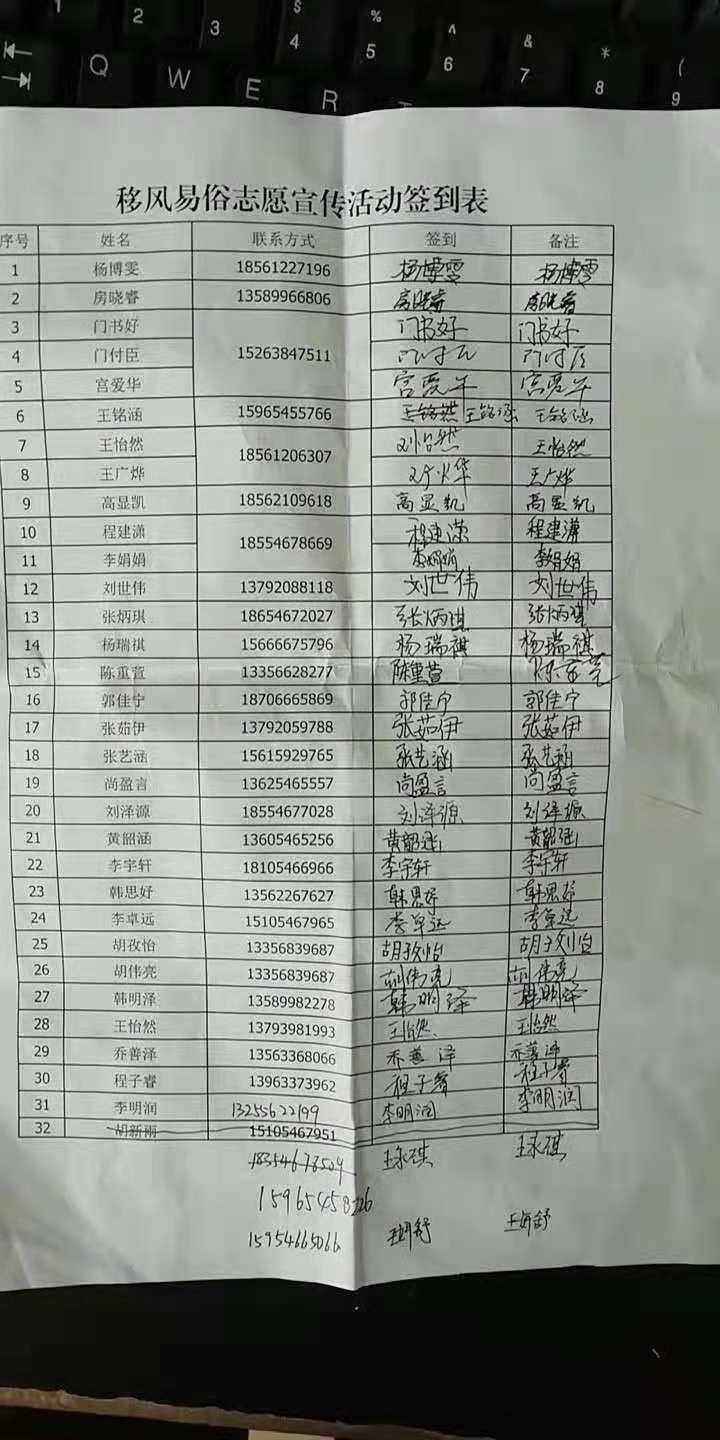 1 2 3 $ 4 % 5 ^ 6 & 7 * 8 ( 9
Q W E R
移风易俗志愿宣传活动签到表
序号 姓名 联系方式 签到 备注
1 杨博雯 18561227196 杨博雯 杨博雯
2 房晓睿 13589966806 房晓睿 房晓睿
3 门书好 门书好 门书好
4 门付臣 15263847511 门付臣 门付臣
5 宫爱华 宫爱华 宫爱华
6 王铭涵 15965455766 王铭涵 王铭涵
7 王怡然 王怡然
18561206307
8 王广烨 王广烨
9 高显凯 18562109618 高显凯 高显凯
10 程建潇 程建潇 程建潇
18554678669
11 李娟娟 李娟娟 李娟娟
12 刘世伟 13792088118 刘世伟 刘世伟
13 张炳琪 18654672027 张炳琪 张炳琪
14 杨瑞祺 15666675796 杨瑞祺 杨瑞祺
15 陈重萱 13356628277 陈重萱 陈重萱
16 郭佳宁 18706665869 郭佳宁 郭佳宁
17 张茹伊 13792059788 张茹伊 张茹伊
18 张艺涵 15615929765 张艺涵 张艺涵
19 尚盈言 13625465557 尚盈言 尚盈言
20 刘泽源 18554677028 刘泽源 刘泽源
21 黄韶涵 13605465256 黄韶涵 黄韶涵
22 李宇轩 18105466966 李宇轩 李宇轩
23 韩思好 13562267627 韩思好 韩思好
24 李卓远 15105467965 李卓远 李卓远
25 胡孜怡 13356839687 胡孜怡 胡孜怡
26 胡伟亮 13356839687 胡伟亮 胡伟亮
27 韩明泽 13589982278 韩明泽 韩明泽
28 王怡然 13793981993 王怡然 王怡然
29 乔善泽 13563368066 乔善泽 乔善泽
30 程子睿 13963373962 程子睿 程子睿
31 李明润 13255622199 李明润 李明润
32 胡新雨 15105467951
王永琪 王永琪
15965458226
15954665066 王妍舒 王妍舒